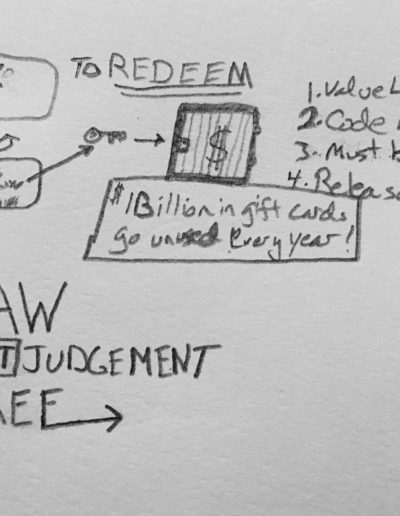 TO REDEEM
1. Value
2. Code
3. Must
4. Release
$
$1Billion in gift cards
go unused every year!
AW
JUDGEMENT
EE